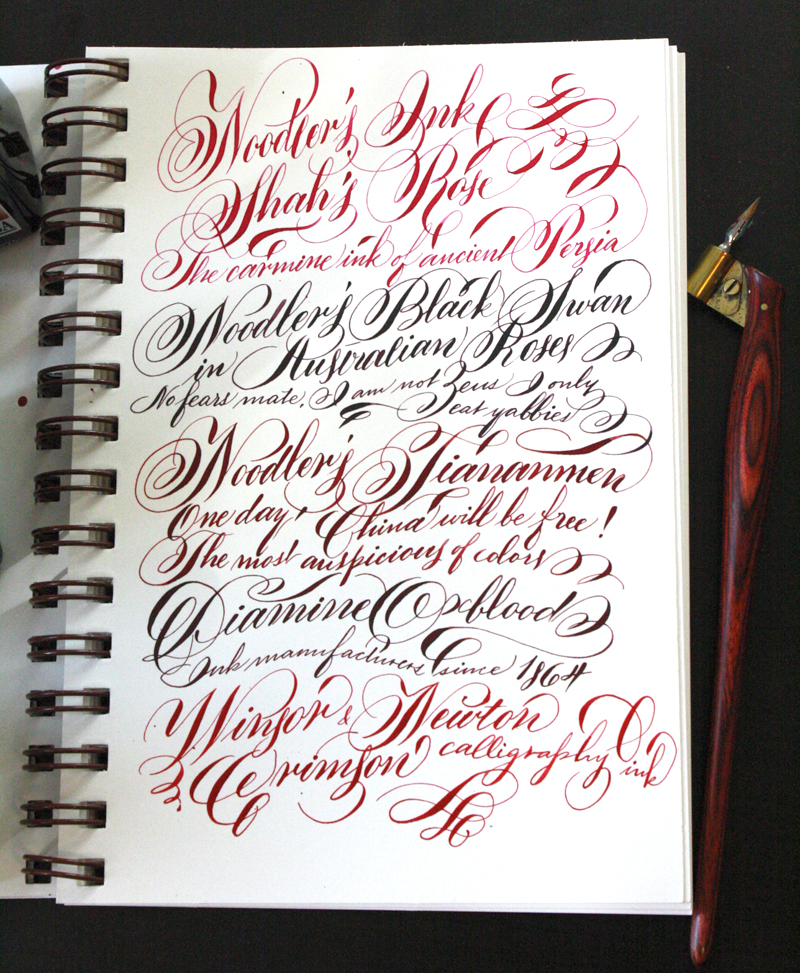 Noodler's Ink
Shah's Rose
The carmine ink of ancient Persia
Noodler's Black Swan
in Australian Roses
No fears mate, I am not Zeus I only
eat yabbies
Noodler's Tiananmen
One day, China will be free!
The most auspicious of colors
Diamine Oxblood
Ink manufacturers since 1864
Winsor & Newton
Crimson calligraphy ink